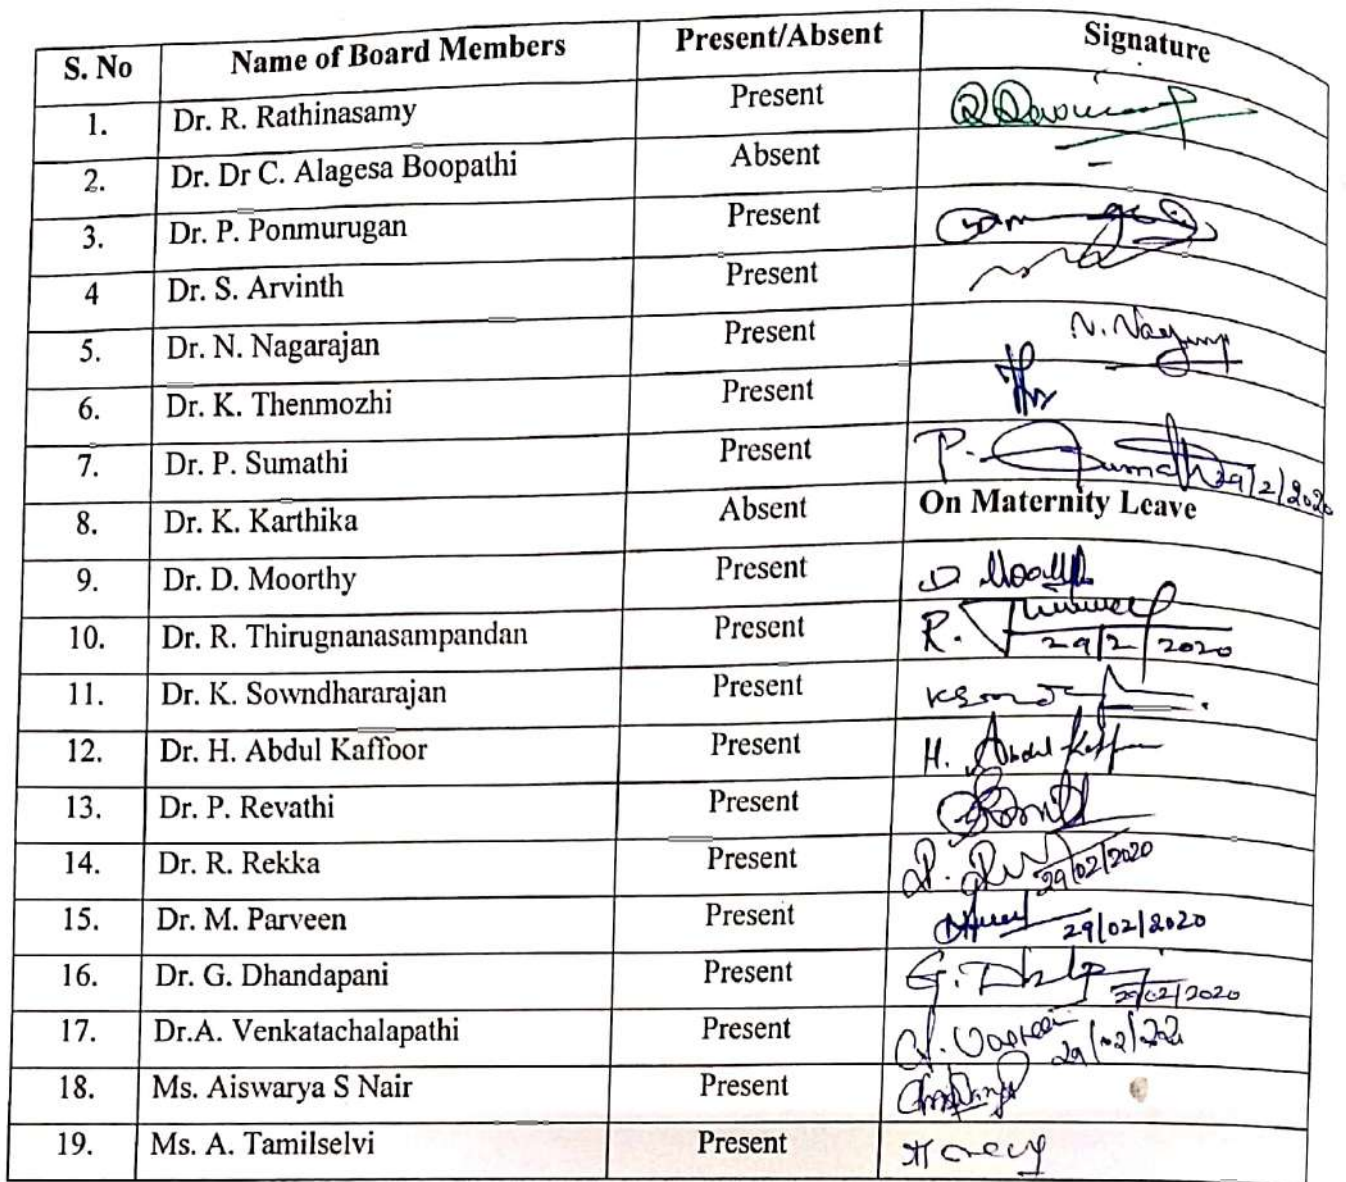 S. No Name of Board Members Present/Absent Signature
1. Dr. R. Rathinasamy Present
2. Dr. Dr C. Alagesa Boopathi Absent -
3. Dr. P. Ponmurugan Present
4 Dr. S. Arvinth Present
5. Dr. N. Nagarajan Present N.
6. Dr. K. Thenmozhi Present
7. Dr. P. Sumathi Present P. Sumathi 29/2/2020
8. Dr. K. Karthika Absent On Maternity Leave
9. Dr. D. Moorthy Present D.
10. Dr. R. Thirugnanasampandan Present R. 29/2/2020
11. Dr. K. Sowndhararajan Present
12. Dr. H. Abdul Kaffoor Present H. Abdul
13. Dr. P. Revathi Present
14. Dr. R. Rekka Present 29/02/2020
15. Dr. M. Parveen Present 29/02/2020
16. Dr. G. Dhandapani Present G. 29/02/2020
17. Dr.A. Venkatachalapathi Present
18. Ms. Aiswarya S Nair Present
19. Ms. A. Tamilselvi Present